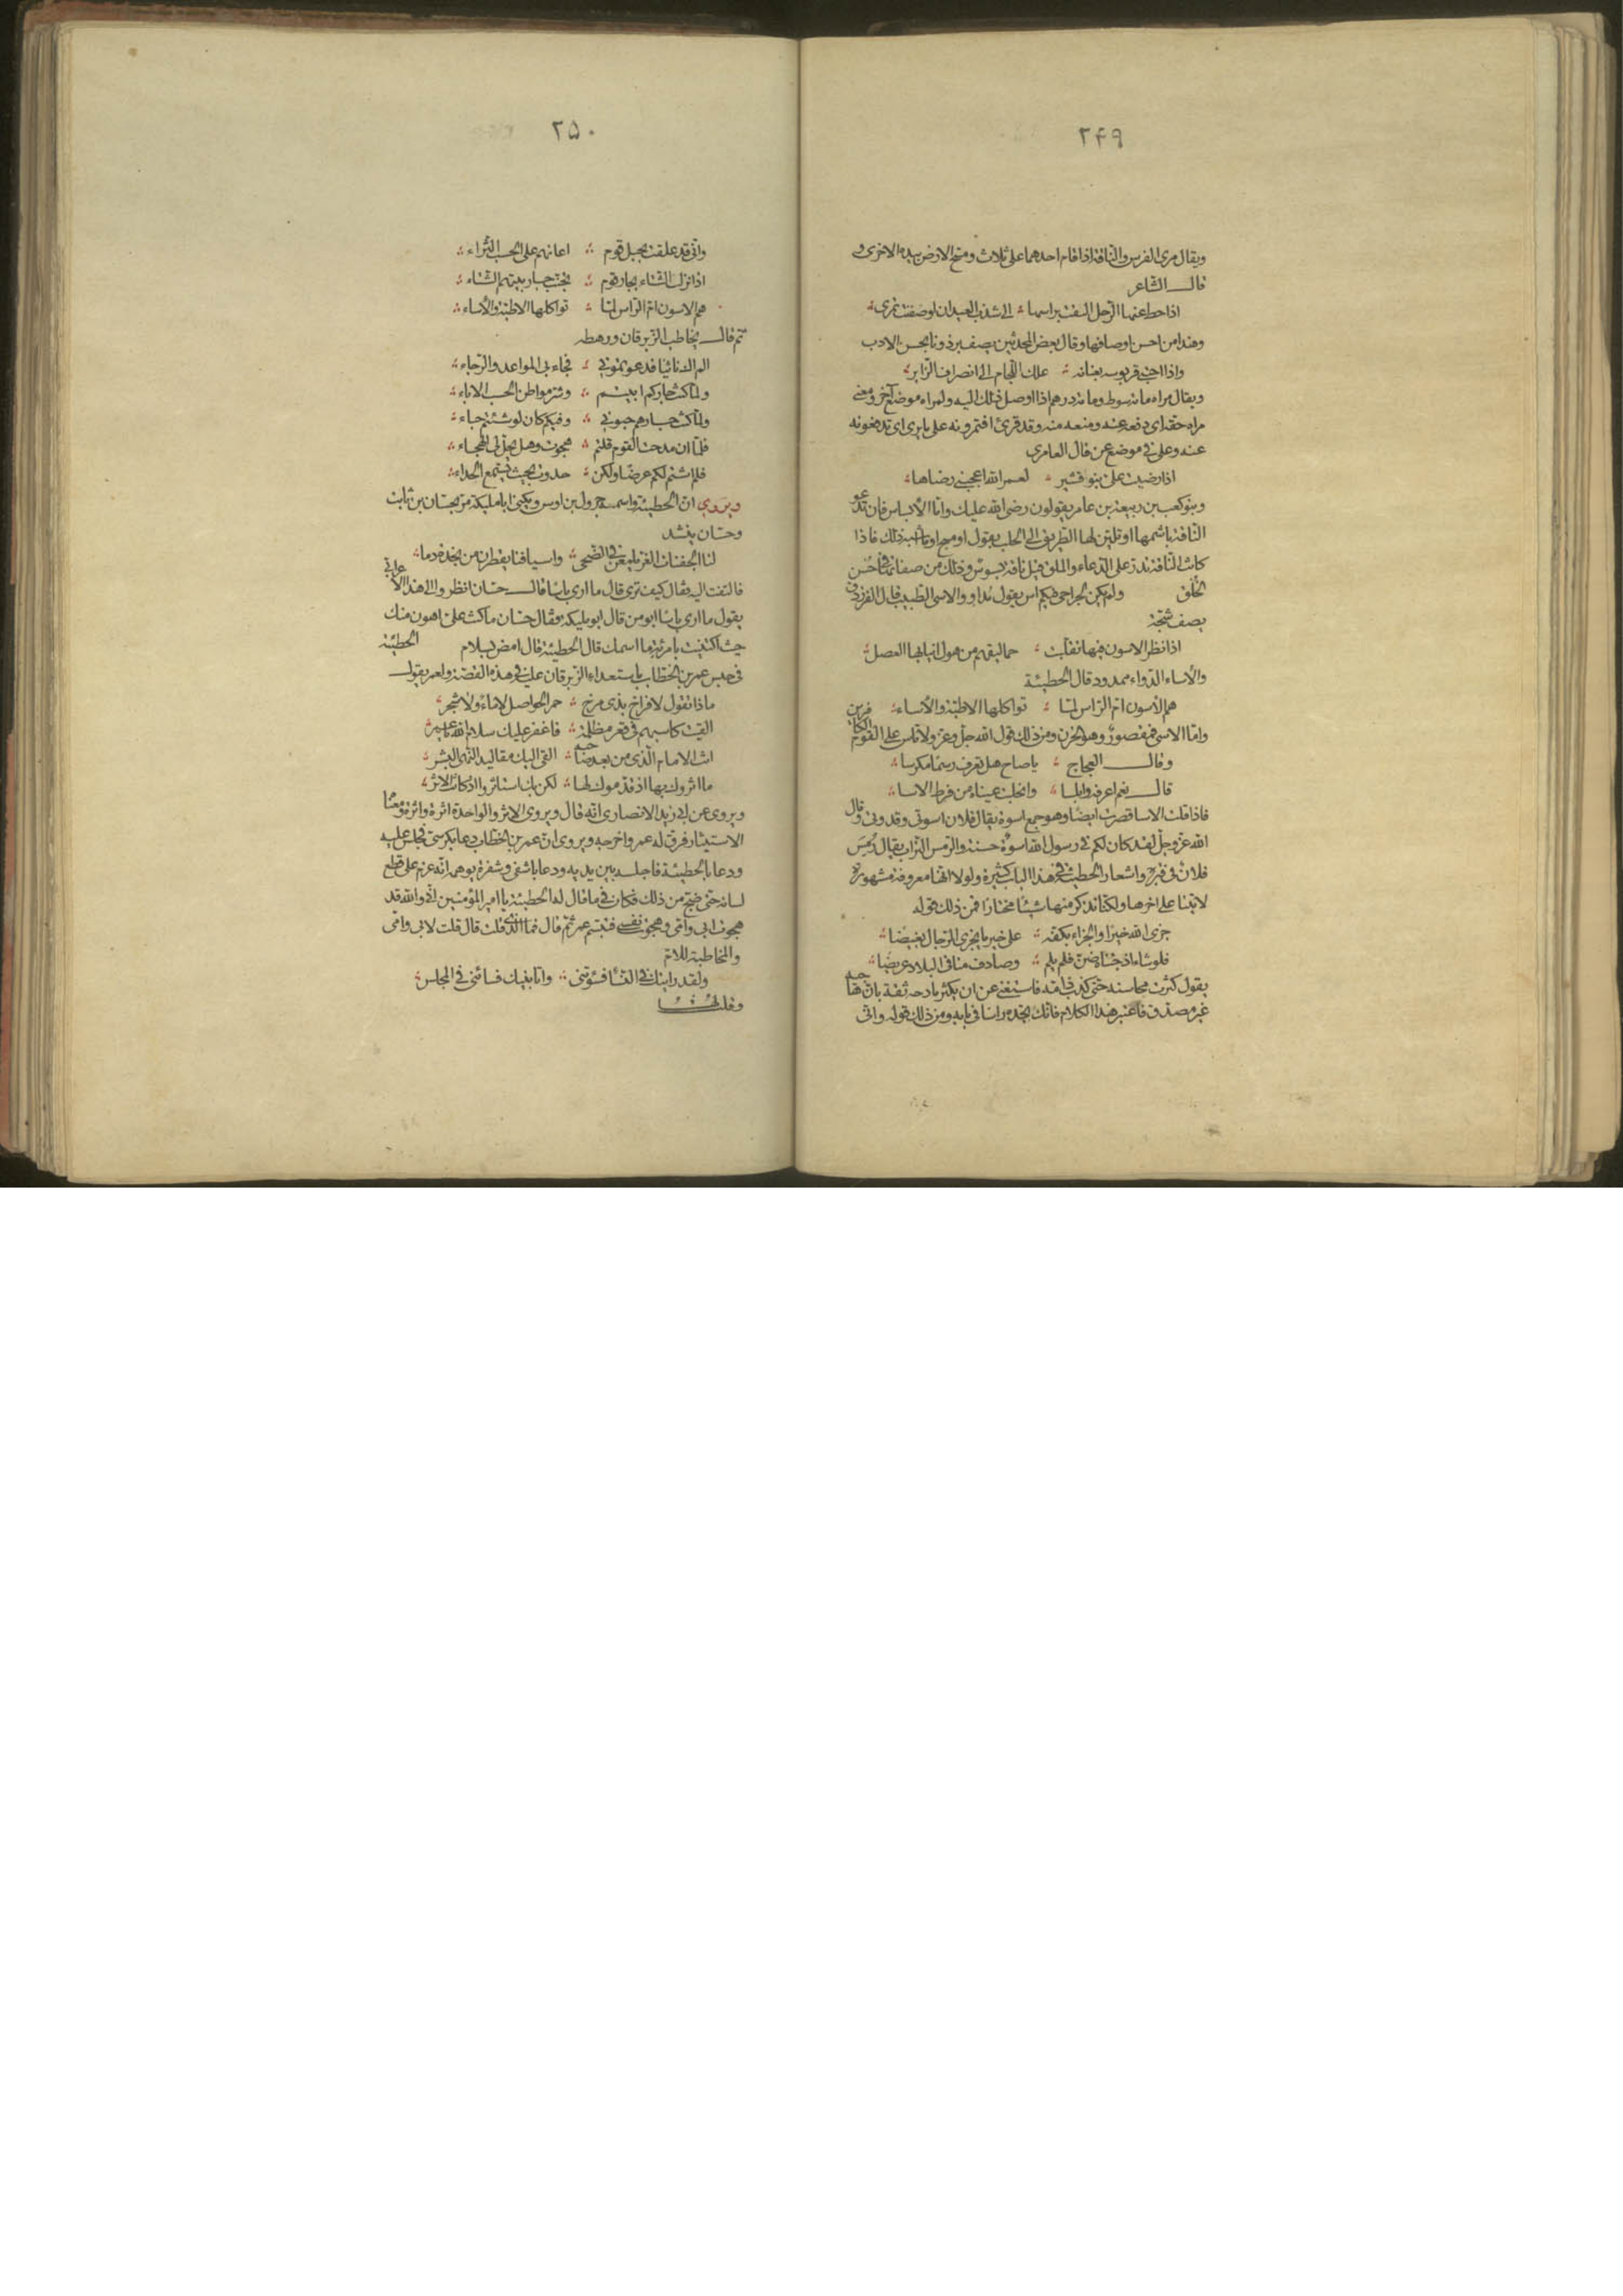 ٢۴٩
ويقال مرى الفرس والناقة اذا قام احدهما على ثلاث ومسح الارض بيده الاخرى و
قال الشاعر
اذا حط عنها الرحل القت براسها الى شذب العيدان او صفنت تمرى
وهذا من احسن اوصافها وقال بعض المحدثين يصف برذونا بحسن الادب
واذا احتبى قربوسه بعنانه علك اللجام الى انصراف الزاير
ويقال مراه مائة سوط ومائة درهم اذا اوصل ذلك اليه ولمراه موضع آخر ومعنى
مراه حقه اى دفعه عنه ومنعه منه وقد قرئ افتمرونه على ما يرى اى تدفعونه
عنه وعلى فى موضع عن قال العامرى
اذا رضيت على بنو قشير لعمر الله اعجبنى رضاها
وبنو كعب بن ربيعة بن عامر يقولون رضى الله عليك واما الأبساس فان تدعو
الناقة باسمها او تلين لها الطريق الى الحلب بقول او مسح او ما اشبه ذلك فاذا
كانت الناقة تدر على الدعاء والملق قيل ناقة بسوس وذلك من صفاتها فى حسن
الخلق ولم يكن لجراحى فيكم آس يقول مداو والاسى الطبيب قال الفرزدق
يصف شجّة
اذا نظر الاسون فيها تقلبت حماليقهم من هول انيابها العصل
والأساء الدواء ممدود قال الحطيئة
هم الأسون ام الراس لما تواكلها الاطبة والأساء
واما الاسى فمقصور وهو الحزن ومن ذلك قول الله جل وعز ولا تاس على القوم الكافرين
وقال العجاج يا صاح هل تعرف رسما مكرسا
قال نعم اعرفه وابلسا وانحلبت عيناه من فرط الاسا
فاذا قلت الاسا قصرت ايضا وهو جمع اسوة يقال فلان اسوتى وقدوتى وقال
الله عز وجل لقد كان لكم فى رسول الله اسوة حسنة والرمس التراب يقال رمس
فلان فى قبره واشعار الحطيئة فى هذا الباب كثيرة ولولا انها معروفة مشهورة
لاتينا على اخرها ولكنا نذكر منها شيئا مختارا فمن ذلك قوله
جزى الله خيرا والجزاء بكفه على خير ما يجزى الرجال بغيضا
فلو شاء اذ جئناه ضن فلم يلم وصادف مناى فى البلاد عريضا
يقول كثرت محاسنه حتى كذب ذامه فاستغنى عن ان يكثر مادحه ثقة بان هاجيه
غير مصدق فاعتبر هذا الكلام فانك تجده راسا فى بابه ومن ذلك قوله وانى
٢۵٠
وانى قد علقت بحبل قوم اعانهم على الحسب الثراء
اذا نزل الشتاء بجار قوم تجنب جار بيتهم الشتاء
هم الاسون ام الراس لما تواكلها الاطبة والأساء
ثم قال يخاطب الزبرقان ورهطه
الم اك نائيا فدعوتمونى فجاء بى المواعد والرجاء
ولما كنت جاركم ابيتم وشر مواطن الحسب الاباء
ولما كنت جارهم حبونى وفيكم كان لو شئتم حباء
فلما ان مدحت القوم قلتم هجوت وهل يحل لى الهجاء
فلم اشتم لكم عرضا ولكن حدوت بحيث يستمع الحداء
ويروى ان الحطيئة واسمه جرول بن اوس ويكنى ابا مليكة مر بحسان بن ثابت
وحسان ينشد
لنا الجفنات الغر يلمعن فى الضحى واسيافنا يقطرن من نجدة دما
فالتفت اليه فقال كيف ترى قال ما ارى باسا قال حسان انظروا الى هذا الاعرابى
يقول ما ارى باسا ابو من قال ابو مليكة فقال حسان ما كنت على اهون منك
حيث اكتنيت بامرئة ما اسمك قال الحطيئة قال امض بسلام الحطيئة
فى حبس عمر بن الخطاب باستعداء الزبرقان عليه فى هذه القصة ولعمر يقول
ماذا تقول لافراخ بذى مرخ حمر الحواصل لا ماء ولا شجر
القيت كاسبهم فى قعر مظلمة فاغفر عليك سلام الله يا عمر
انت الامام الذى من بعد صاحبه القى اليك مقاليد النهى البشر
ما اثروك بها اذ قدموك لها لكن بك استاثروا اذ كانت الاثر
ويروى عن ابى زيد الانصارى انه قال ويروى الاثر والواحدة اثرة واثرة ومعناها
الاستيثار فرق له عمر واخرجه ويروى ان عمر بن الخطاب دعا بكرسى فجلس عليه
ودعا بالحطيئة فاجلسه بين يديه ودعا باشفى وشفرة يوهمه انه عزم على قطع
لسانه حتى ضج من ذلك فكان فى ما قال له الحطيئة يا امير المؤمنين انى والله قد
هجوت ابى وامى وهجوت نفسى فتبسم عمر ثم قال فما الذى قلت قال قلت لابى وامى
والمخاطبة للام
ولقد رايتك فى النسا فسؤتنى وابا بنيك فسائنى فى المجلس
وقلت لها